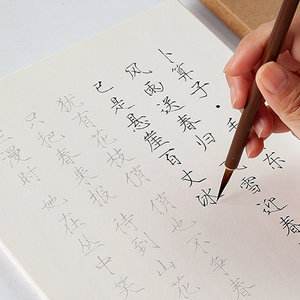 卜算子·毛东
风雨送春归飞雪迎春
已是悬崖百丈冰
犹有花枝俏俏也不争春
只把春来报待到山花
漫时她在丛中笑